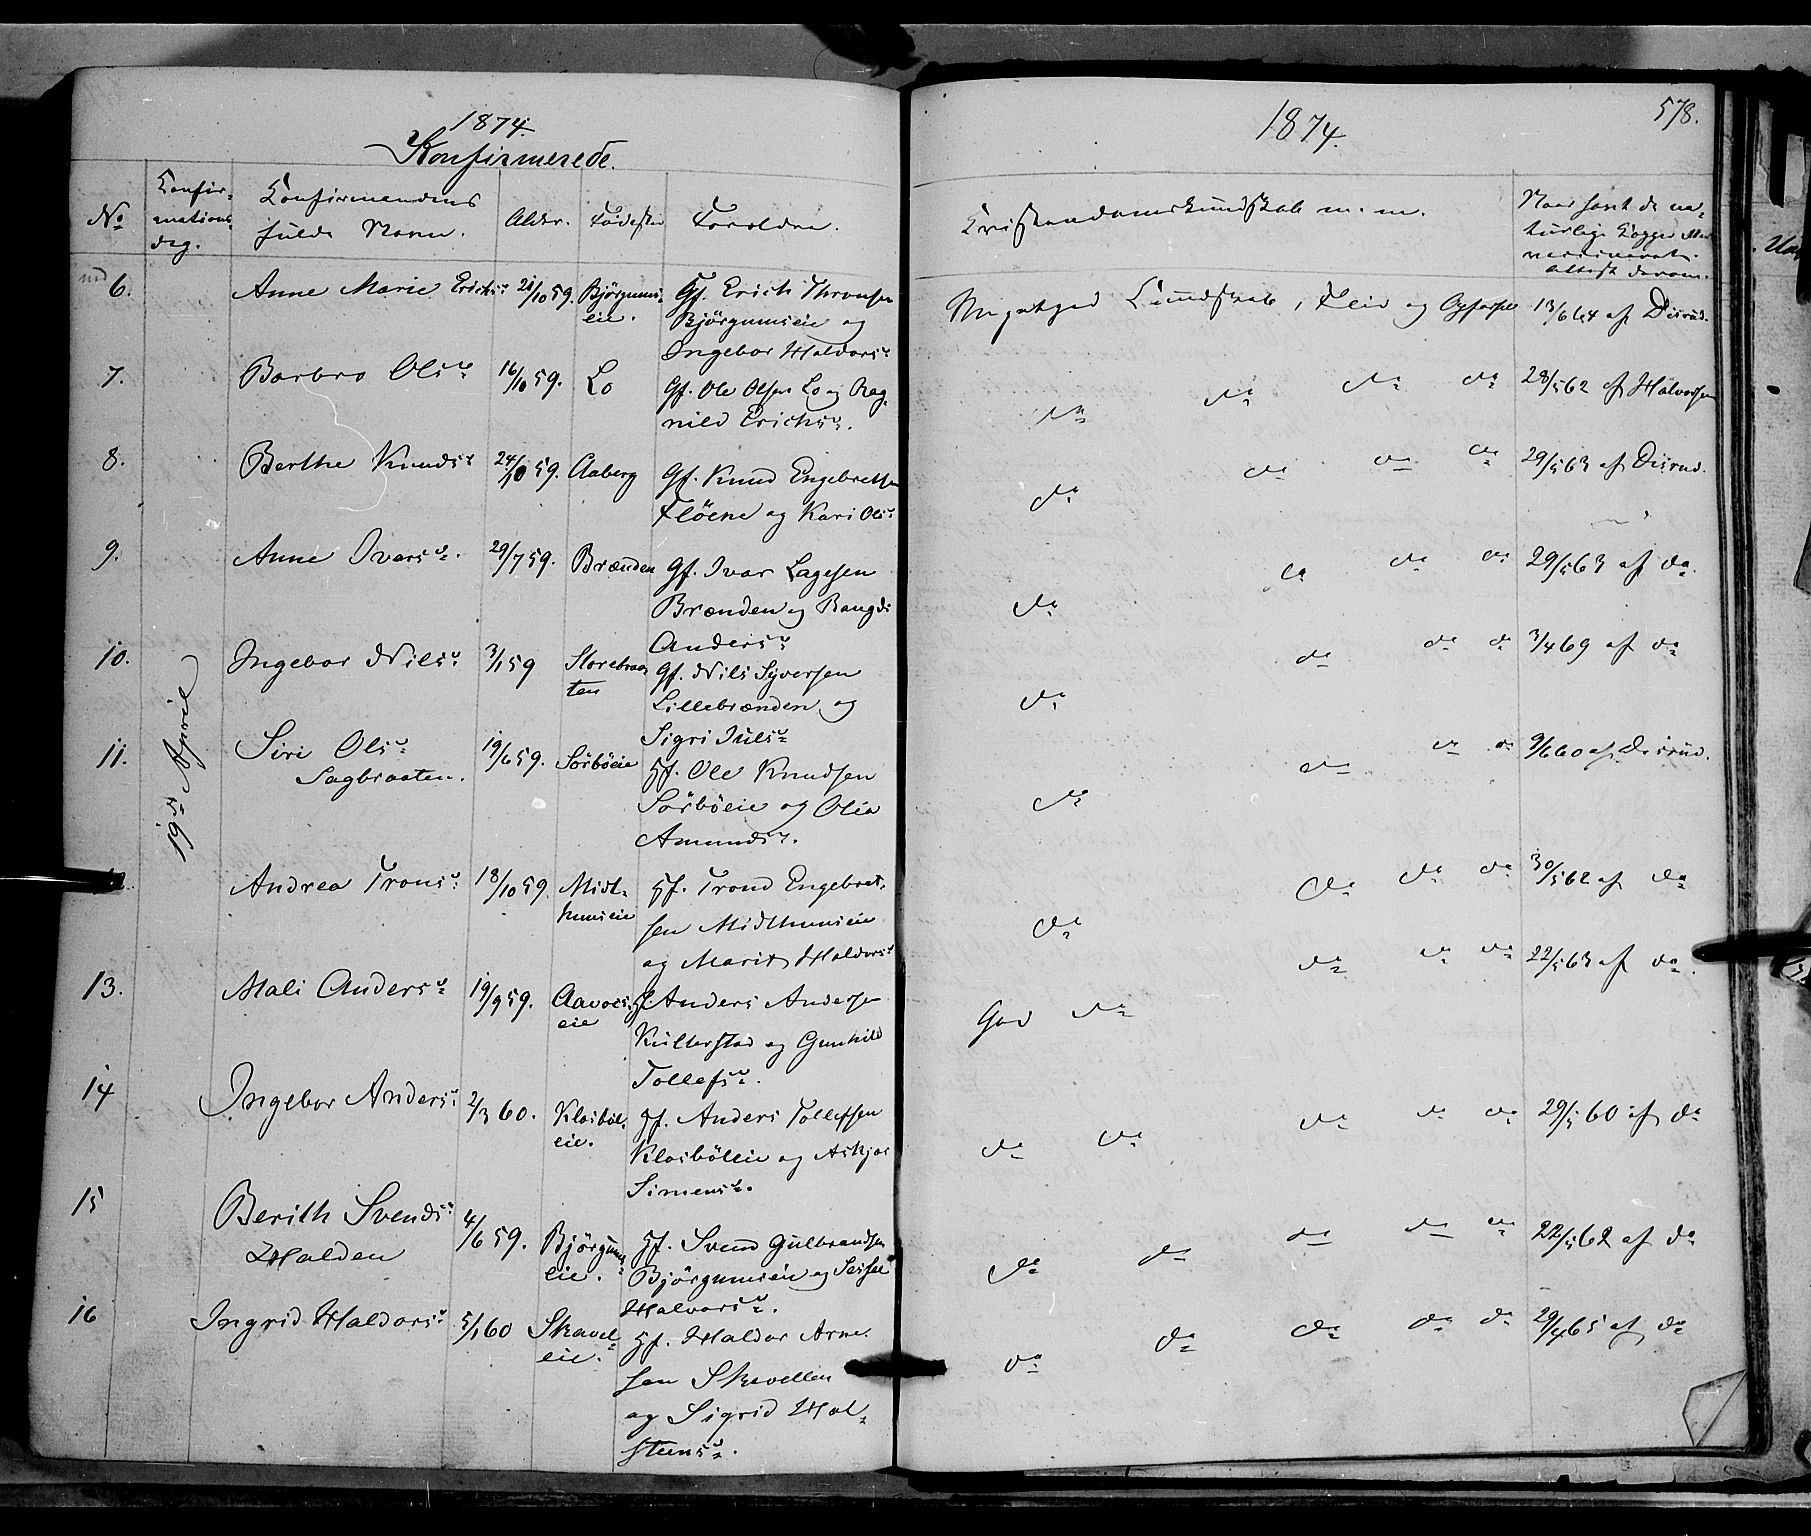 1874.
Konfirmerede.
No
Konfir-
mations-
dag.
Konfirmandens
fulde Navn.
Alder.
Fødested
Forældre.
6.
Anne Marie Erichsd
21/10 59.
Bjørgums-
eie.
Gf. Erich Thronsen
Bjørgumseie og
Ingebor Haldorsd
7.
Barbro Olsd
16/10 59.
Lo
Gf. Ole Olsen Lo og Rag-
nild Erichsd.
8.
Berthe Knudsd
24/10 59.
Aaberg
Gf. Knud Engebretsen
Fløene og Kari Olsd
9.
Anne Ivarsd.
29/7 59.
Brænden
Gf. Ivar Lagesen
Brænden og Rangdi
Andersd
10.
Ingebor Nilsd
3/1 59
Storebraa-
ten
Gf. Nils Syversen
Lillebrænden og
Sigri Julsd
19de April
11.
Siri Olsd
Sagbraaten.
19/6 59.
Sørbøeie
Gf. Ole Knudsen
Sørbøeie og Olia
Amundsd.
12.
Andrea Tronsd
18/10 59.
Midt-
hunseie
Gf. Trond Engebret-
sen Midthunseie
og Marit Haldorsd
13.
Mali Andersd
19/9 59.
Aavoes-
eie
Gf. Anders Andersen
Kulterstad og Gunhild
Tollefsd.
14
Ingebor Andersd
2/3 60.
Klosbøl-
eie.
Gf. Anders Tollefsen
Klosbøleie og Askjor
Simensd.
15
Berith Svendsd
Halden
4/6 59.
Bjørgums-
eie.
Gf. Svend Gulbrandsen
Bjørgumseie og Sissel
Halvorsd.
16
Ingrid Haldorsd
5/1 60
Skavel-
eie.
Gf. Haldor Arne-
sen Skavellen
og Sigrid Hal-
steensd.
1874.
578.
Kristendomskundskab m. m.
Naar havt de na-
turlige Kopper eller
vaccineret.
Attest derom.
Meget god Kundskab, Flid og Opførsel
13/6 64 af Disrud.
do do do do
28/5 62 af Halvorsen
do do do do
29/5 63 af Disrud.
do do do do
29/5 63 af do.
do do do do
3/4 69 af do
do do do do
9/6 60 af Disrud.
do do do do
30/5 62 af do
God do do do do
22/5 63 af do.
do do do do do
29/5 60 af do
do do do do do
22/5 62 af do
do do do do do
29/4 65 af do